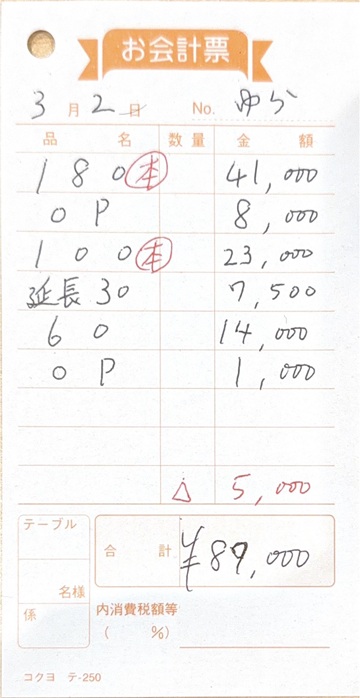 お会計票
3月2日 No. ゆら
品名 数量 金額
180 本 41,000
OP 8,000
100 本 23,000
延長30 7,500
60 14,000
OP 1,000
△ 5,000
テーブル
名様
係
合計 ¥89,000
内消費税額等
( %)
コクヨ テ-250